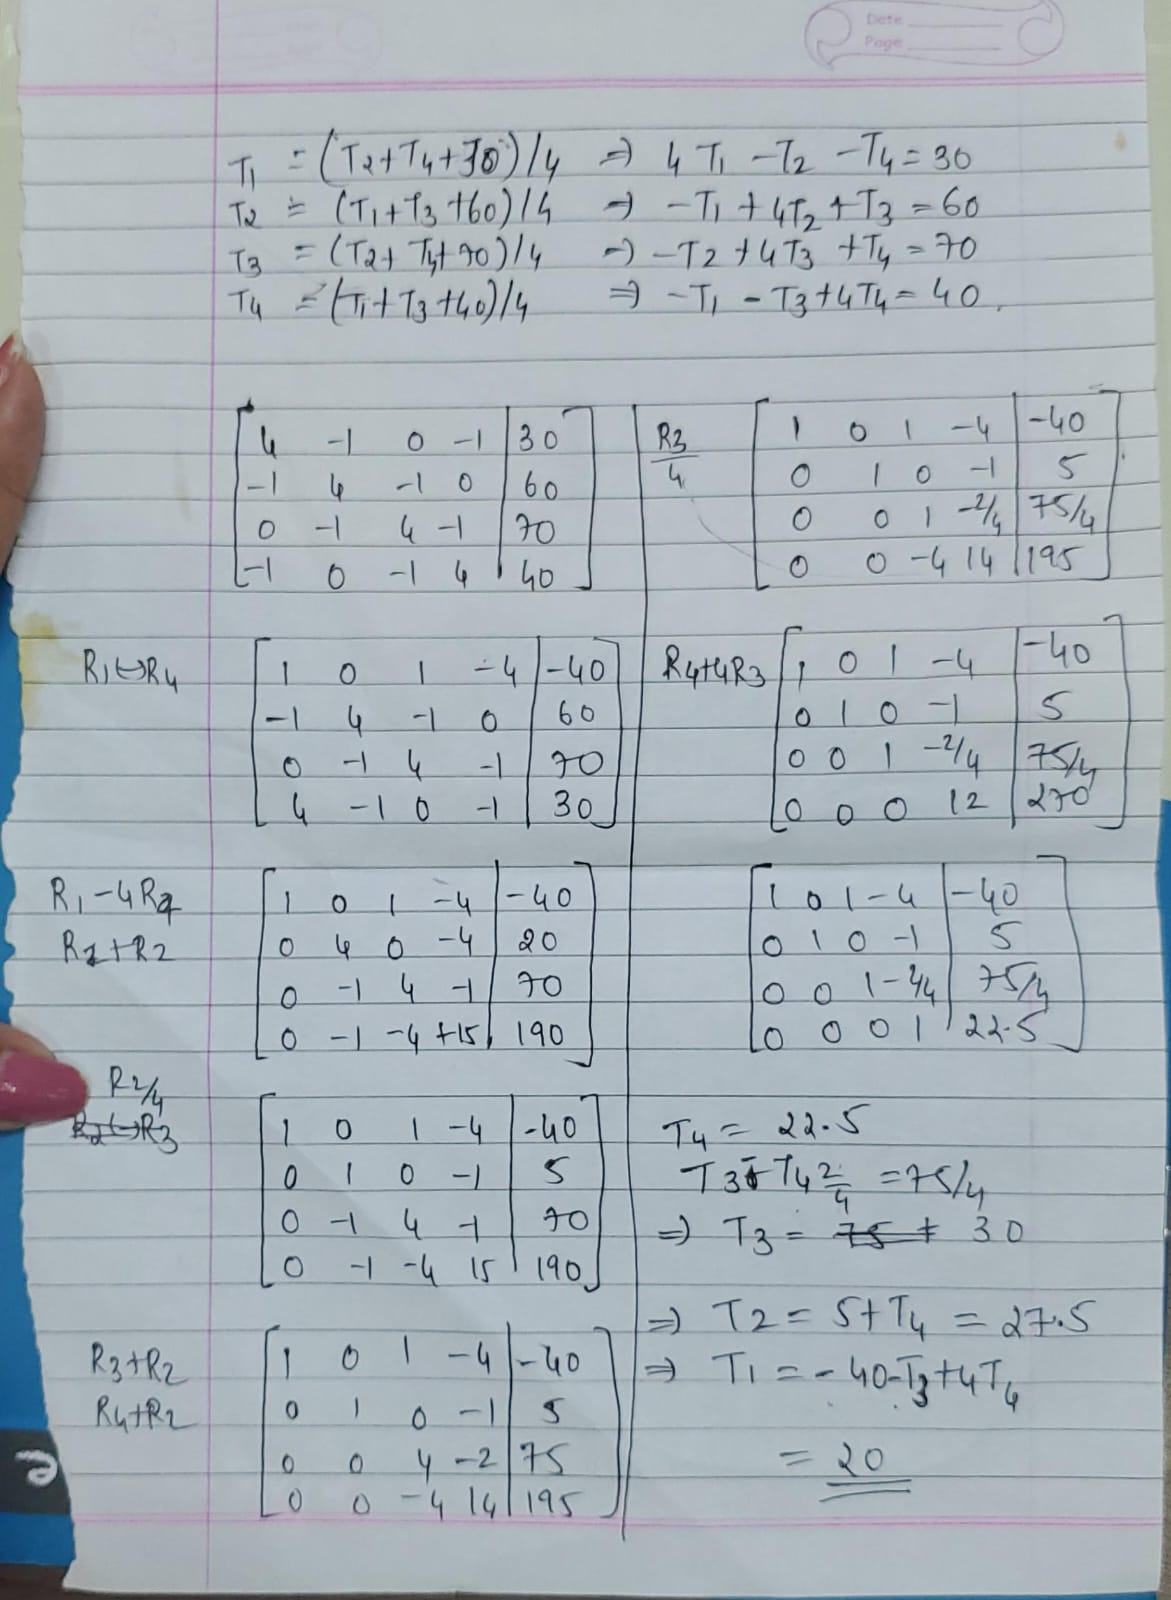 Date
Page
T1 = (T2+T4+30)/4 ⇒ 4T1 - T2 - T4 = 30
T2 = (T1+T3+60)/4 ⇒ -T1 + 4T2 + T3 = 60
T3 = (T2+T4+70)/4 ⇒ -T2 + 4T3 + T4 = 70
T4 = (T1+T3+40)/4 ⇒ -T1 - T3 + 4T4 = 40.
4 -1 0 -1 | 30
-1 4 -1 0 | 60
0 -1 4 -1 | 70
-1 0 -1 4 | 40
R1↔R4
1 0 1 -4 | -40
-1 4 -1 0 | 60
0 -1 4 -1 | 70
4 -1 0 -1 | 30
R1-4R4
R2+R2
1 0 1 -4 | -40
0 4 0 -4 | 20
0 -1 4 -1 | 70
0 -1 -4 +15 | 190
R2/4
R2↔R3
1 0 1 -4 | -40
0 1 0 -1 | 5
0 -1 4 -1 | 70
0 -1 -4 15 | 190
R3+R2
R4+R2
1 0 1 -4 | -40
0 1 0 -1 | 5
0 0 4 -2 | 75
0 0 -4 14 | 195
R3/4
1 0 1 -4 | -40
0 1 0 -1 | 5
0 0 1 -2/4 | 75/4
0 0 -4 14 | 195
R4+4R3
1 0 1 -4 | -40
0 1 0 -1 | 5
0 0 1 -2/4 | 75/4
0 0 0 12 | 270
1 0 1 -4 | -40
0 1 0 -1 | 5
0 0 1 -2/4 | 75/4
0 0 0 1 | 22.5
T4 = 22.5
T3 - T4 2/4 = 75/4
⇒ T3 = 75 + 30
⇒ T2 = 5+T4 = 27.5
⇒ T1 = -40-T3+4T4
= 20